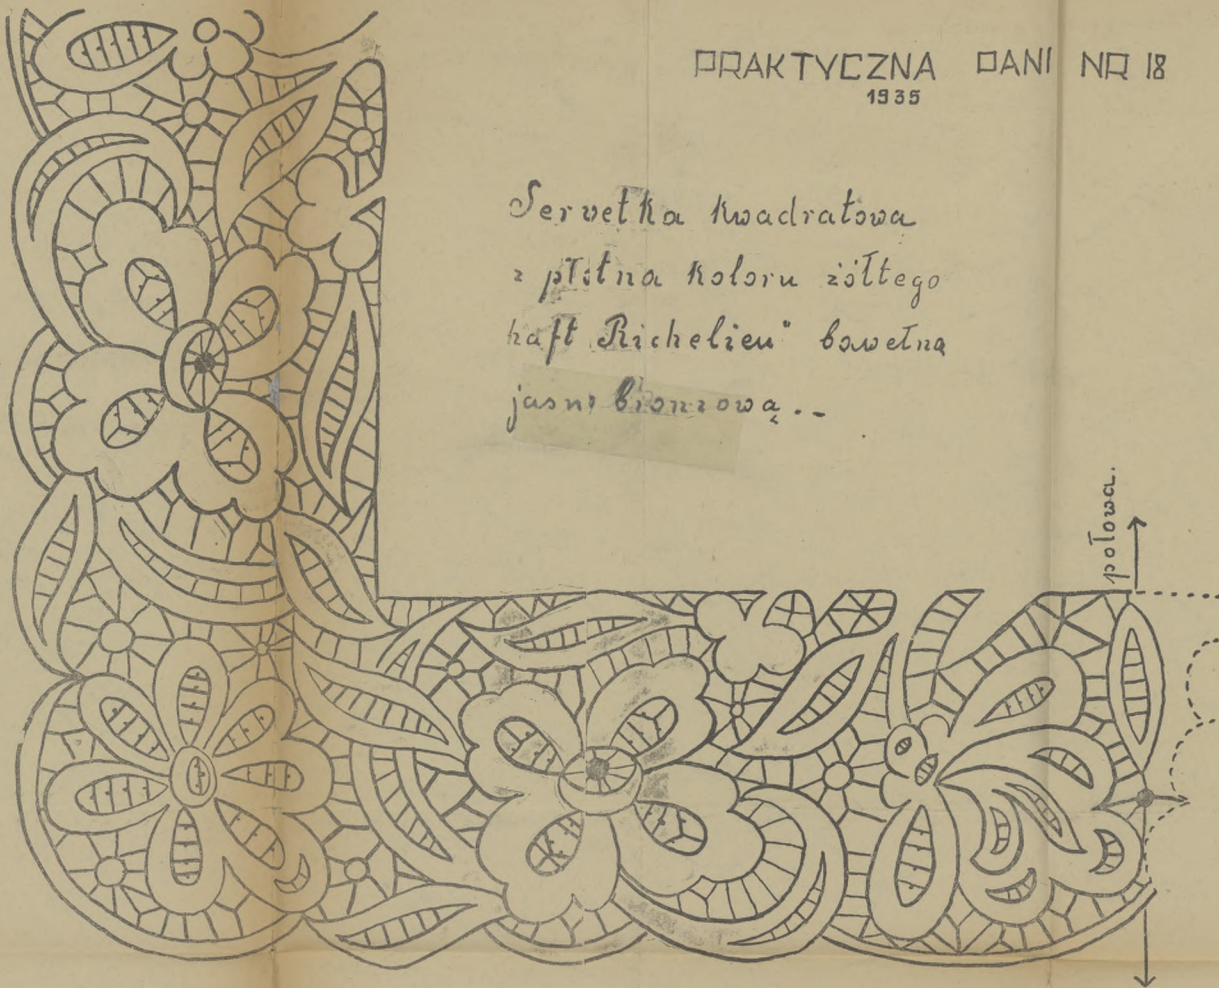 PRAKTYCZNA PANI NR 18
1935
Serwetka kwadratowa
z płótna koloru żółtego
haft „Richelieu" bawełną
jasno bronzową..-
połowa.